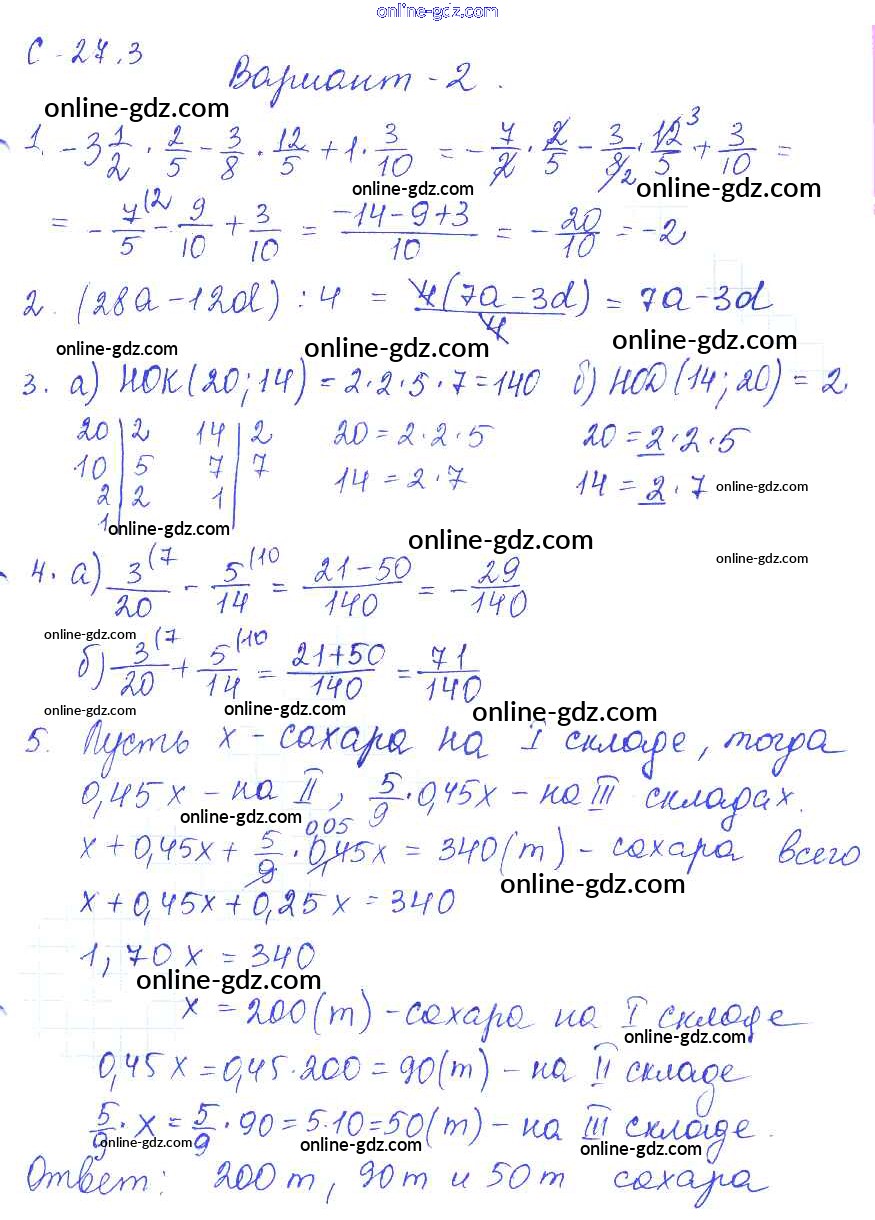 online-gdz.com
С-27.3
Вариант-2.
online-gdz.com
1. -3 1/2 · 2/5 - 3/8 · 12/5 + 1 · 3/10 = - 7/2 · 2/5 - 3/8 2 · 12 3/5 + 3/10 =
online-gdz.com online-gdz.com
= - 7(2/5 - 9/10 + 3/10 = -14-9+3/10 = - 20/10 = -2
2. (28a - 12d) : 4 = 4(7a-3d)/4 = 7a-3d
online-gdz.com online-gdz.com online-gdz.com
3. а) НОК(20;14) = 2·2·5·7=140 б) НОD(14;20) = 2.
20|2 14|2 20=2·2·5 20=2·2·5
10|5 7|7 14=2·7 14=2·7 online-gdz.com
2|2 1|
1|
online-gdz.com online-gdz.com online-gdz.com
4. а) 3(7/20 - 5(10/14 = 21-50/140 = - 29/140
online-gdz.com
б) 3(7/20 + 5(10/14 = 21+50/140 = 71/140
online-gdz.com online-gdz.com online-gdz.com
5. Пусть x - сахара на I складе, тогда
0,45x - на II, 5/9 · 0,45x - на III складах.
online-gdz.com
x + 0,45x + 5/9 · 0,45x 0,05 = 340(т) - сахара всего
online-gdz.com
x + 0,45x + 0,25x = 340
1,70x = 340
online-gdz.com
x = 200(т) - сахара на I складе
online-gdz.com
0,45x = 0,45·200 = 90(т) - на II складе
5/9 · x = 5/9 · 90 = 5·10 = 50(т) - на III складе.
online-gdz.com online-gdz.com online-gdz.com
Ответ: 200т, 90т и 50т сахара